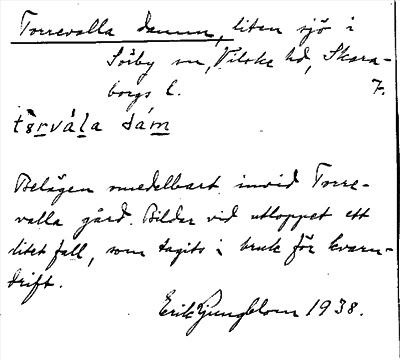 Torrevalla damm, liten sjö i
Sörby sn, Vilske hd, Skara-
borgs l. 7.
tɘrvála dám
Belägen omedelbart invid Torre-
valla gård. Bildar vid utloppet ett
litet fall, som tagits i bruk för kvarn-
drift.
Erik Ljungblom 1938.